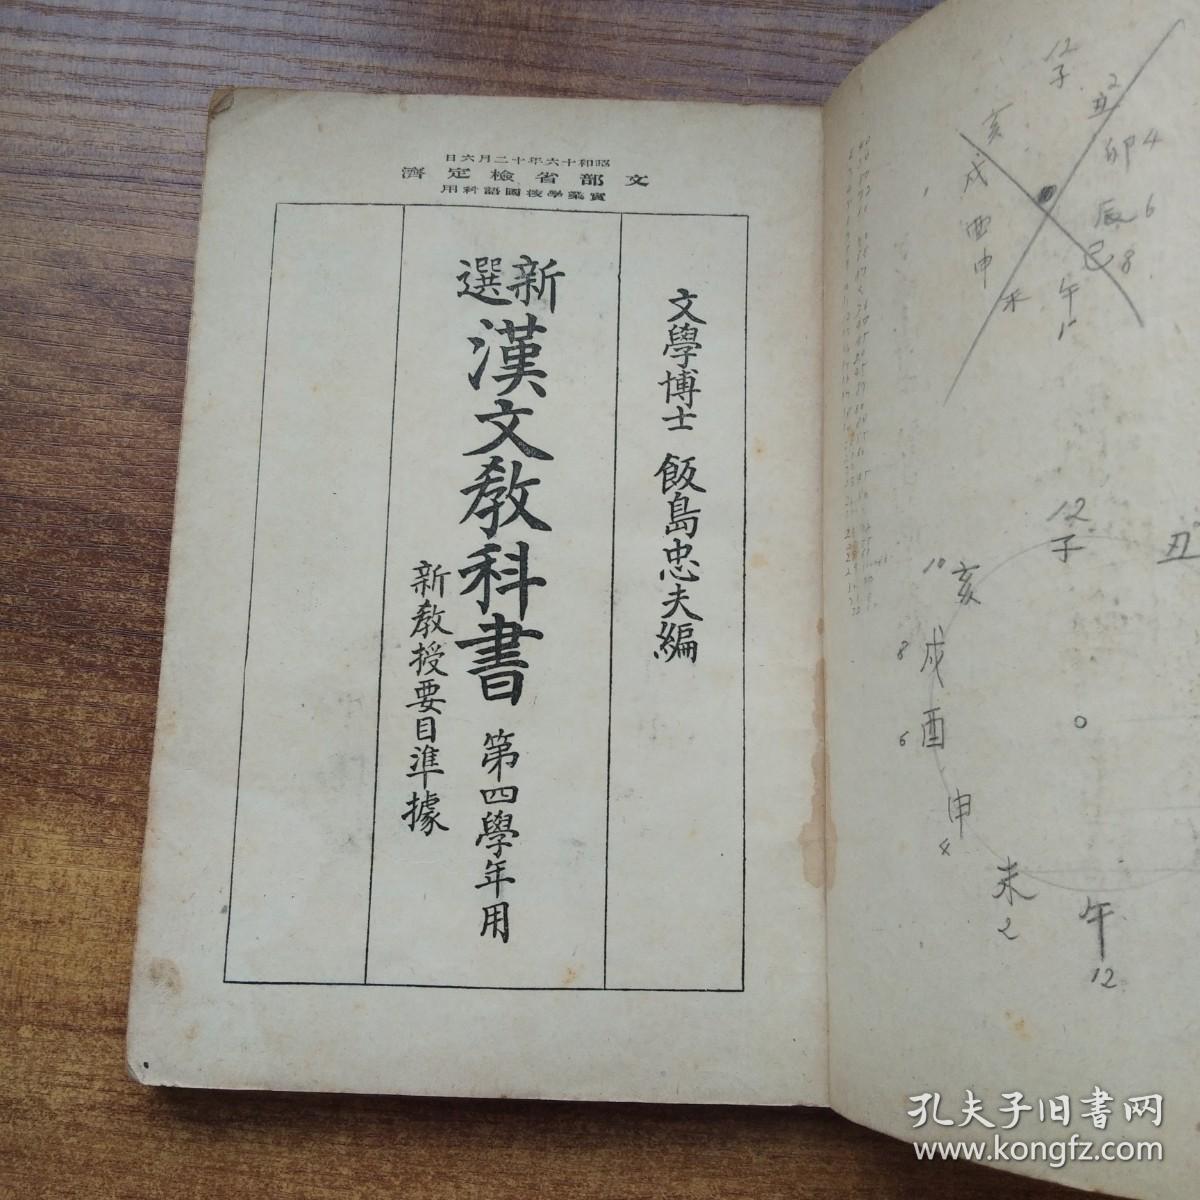 昭和十六年十二月六日
文部省檢定濟
實業學校國語科用
文學博士 飯島忠夫編
新選漢文教科書 第四學年用
新教授要目準據
12
子
丑 2
卯 4
辰 6
巳 8
午
未
申
酉
戌
亥
12
子
丑
10 亥
8 戌
6 酉
申
4
未
2
午
12
孔夫子旧书网
www.kongfz.com